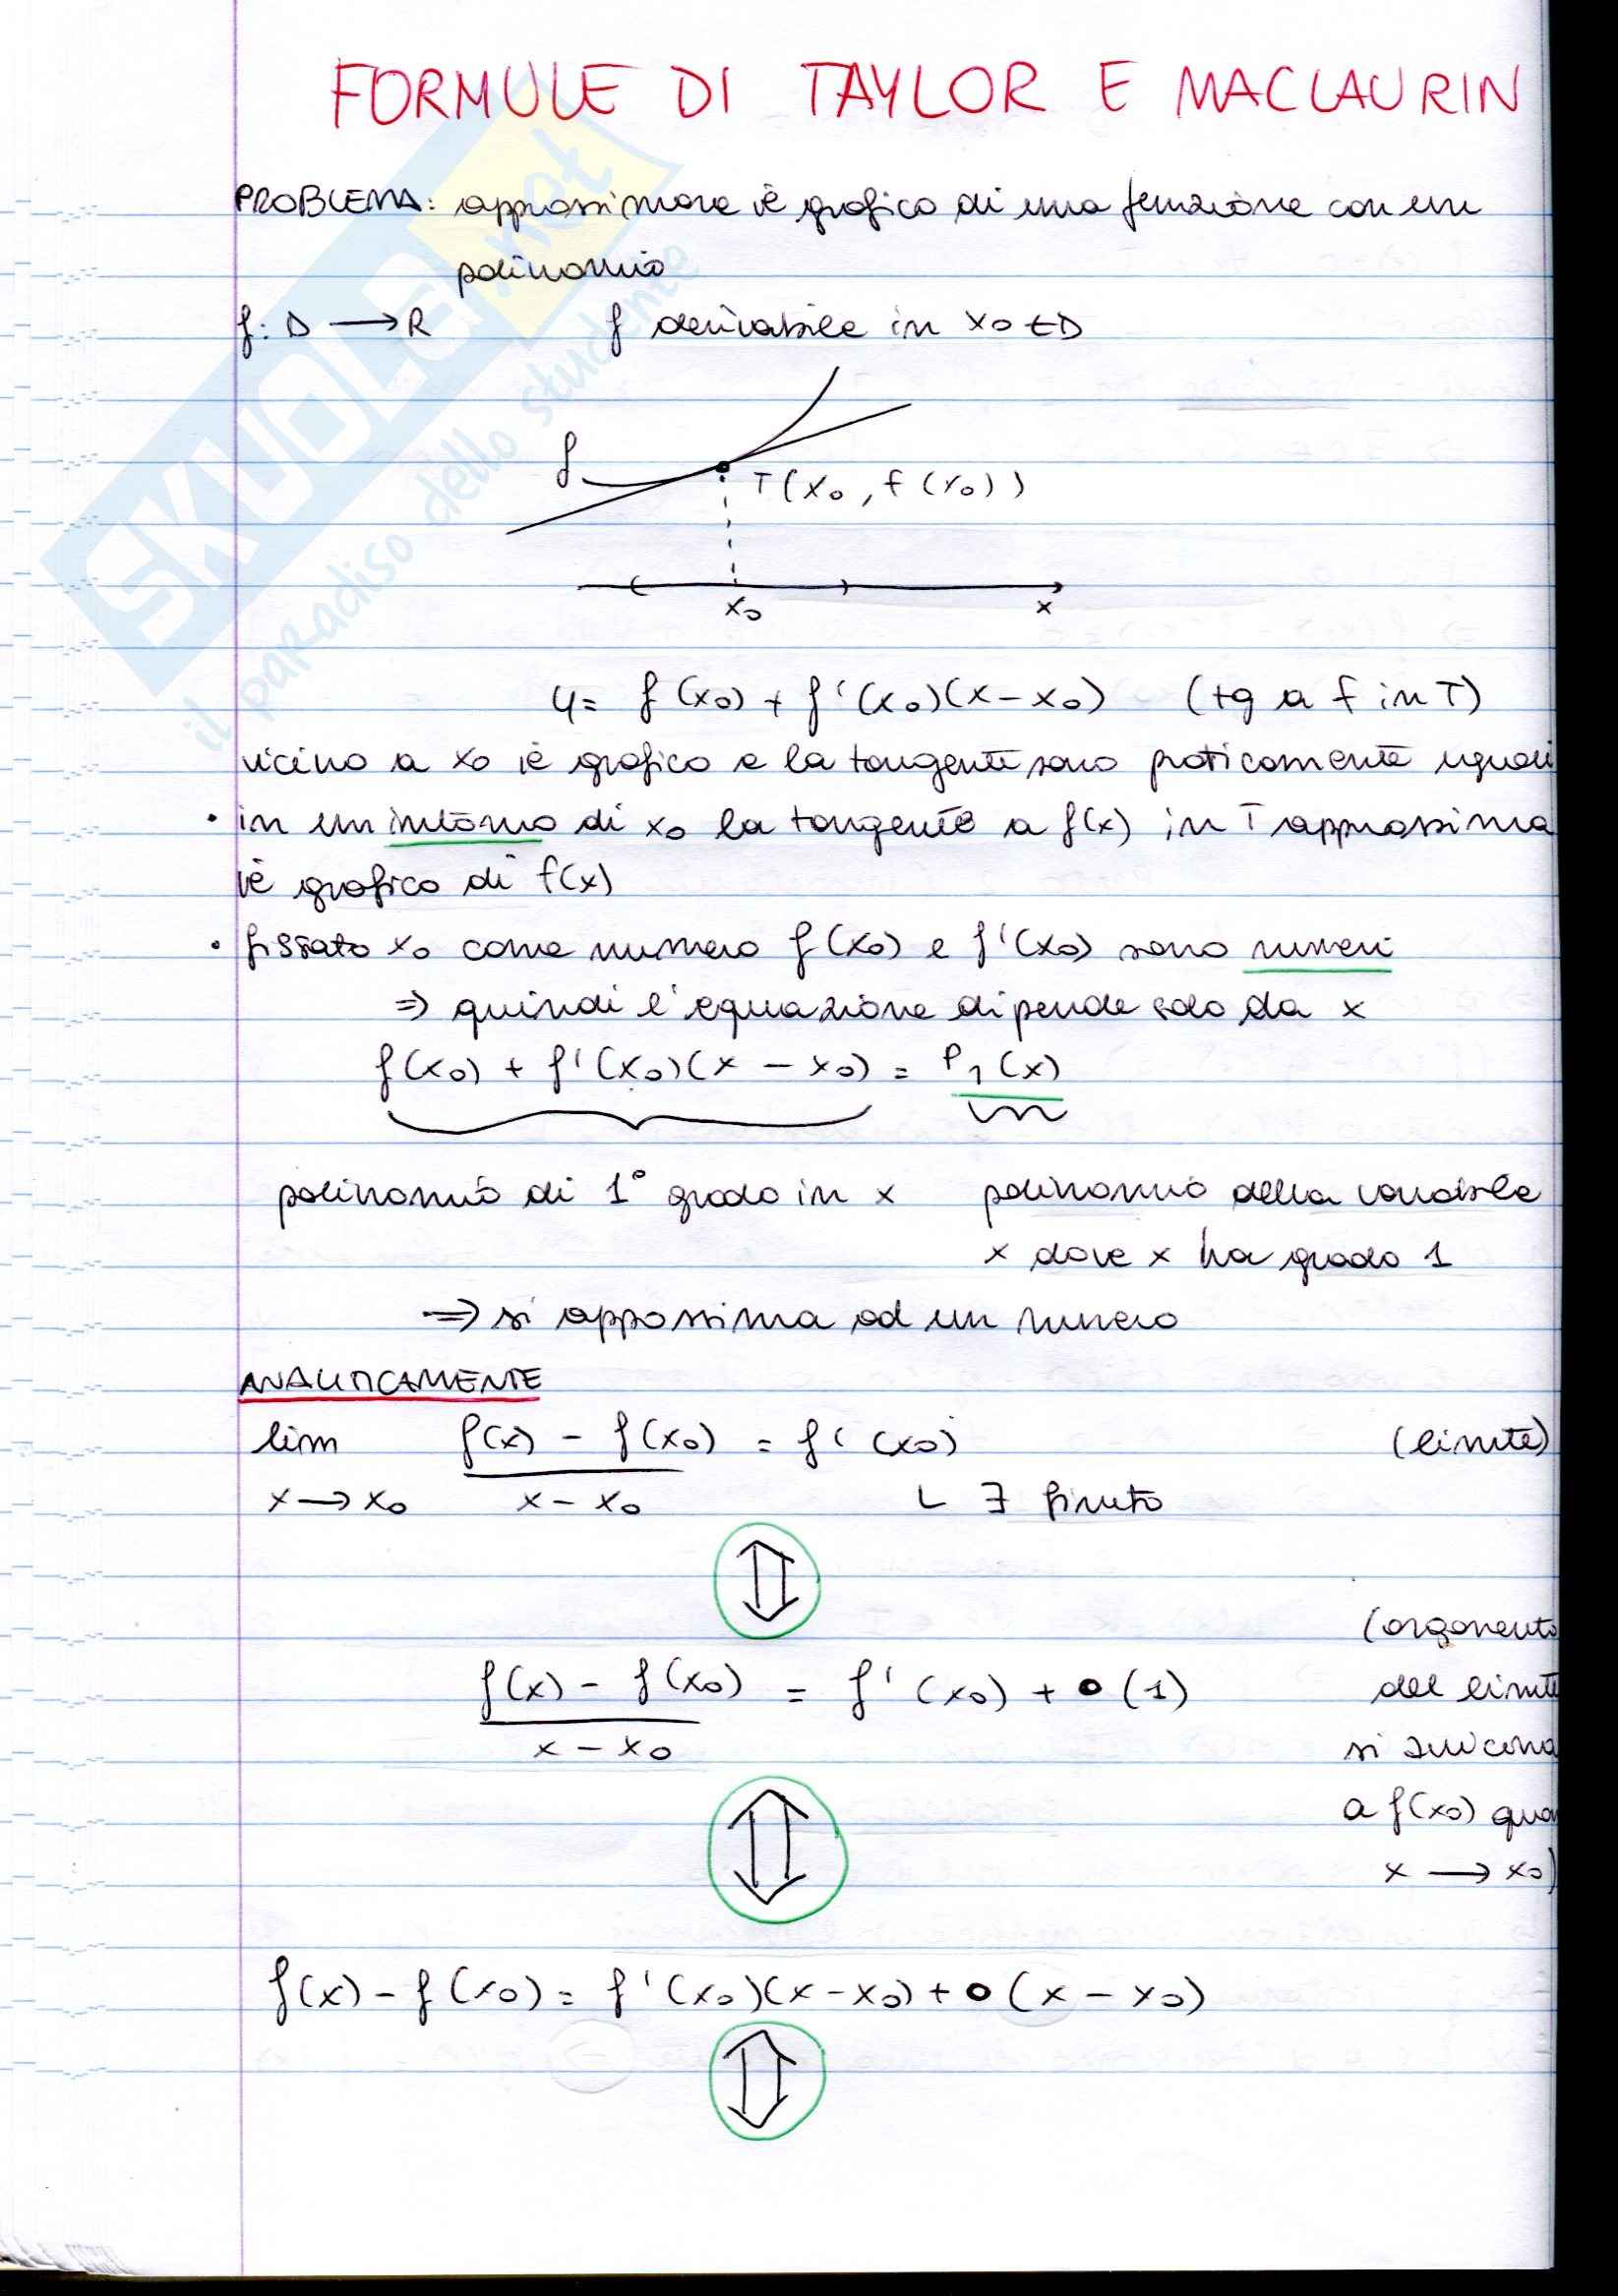 FORMULE DI TAYLOR E MACLAURIN
PROBLEMA: approssimare il grafico di una funzione con un
polinomio
f: D → R f derivabile in x₀ ∈ D
f
T(x₀, f(x₀))
x₀ x
y = f(x₀) + f'(x₀)(x-x₀) (tg a f in T)
vicino a x₀ il grafico e la tangente sono praticamente uguali
• in un intorno di x₀ la tangente a f(x) in T approssima
il grafico di f(x)
• fissato x₀ come numero f(x₀) e f'(x₀) sono numeri
⇒ quindi l'equazione dipende solo da x
f(x₀) + f'(x₀)(x - x₀) = P₁(x)
polinomio di 1° grado in x polinomio della variabile
x dove x ha grado 1
⇒ si approssima ad un numero
ANALITICAMENTE
lim f(x) - f(x₀) = f'(x₀) (limite)
x → x₀ x - x₀ ∃ finito
⇕
(argomento
f(x) - f(x₀) = f'(x₀) + o(1) del limite
x - x₀ si avvicina
⇕ a f(x₀) qua
x → x₀)
f(x) - f(x₀) = f'(x₀)(x-x₀) + o(x - x₀)
⇕
SKUOLA.not
il paradiso dello studente